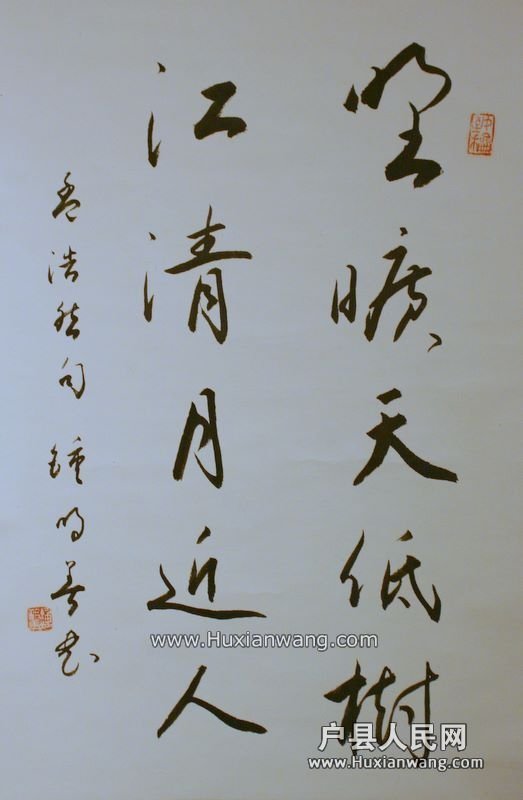 野曠天低樹
江清月近人
孟浩然句 鍾明善书
www.Huxianwang.com
户县人民网
www.Huxianwang.com